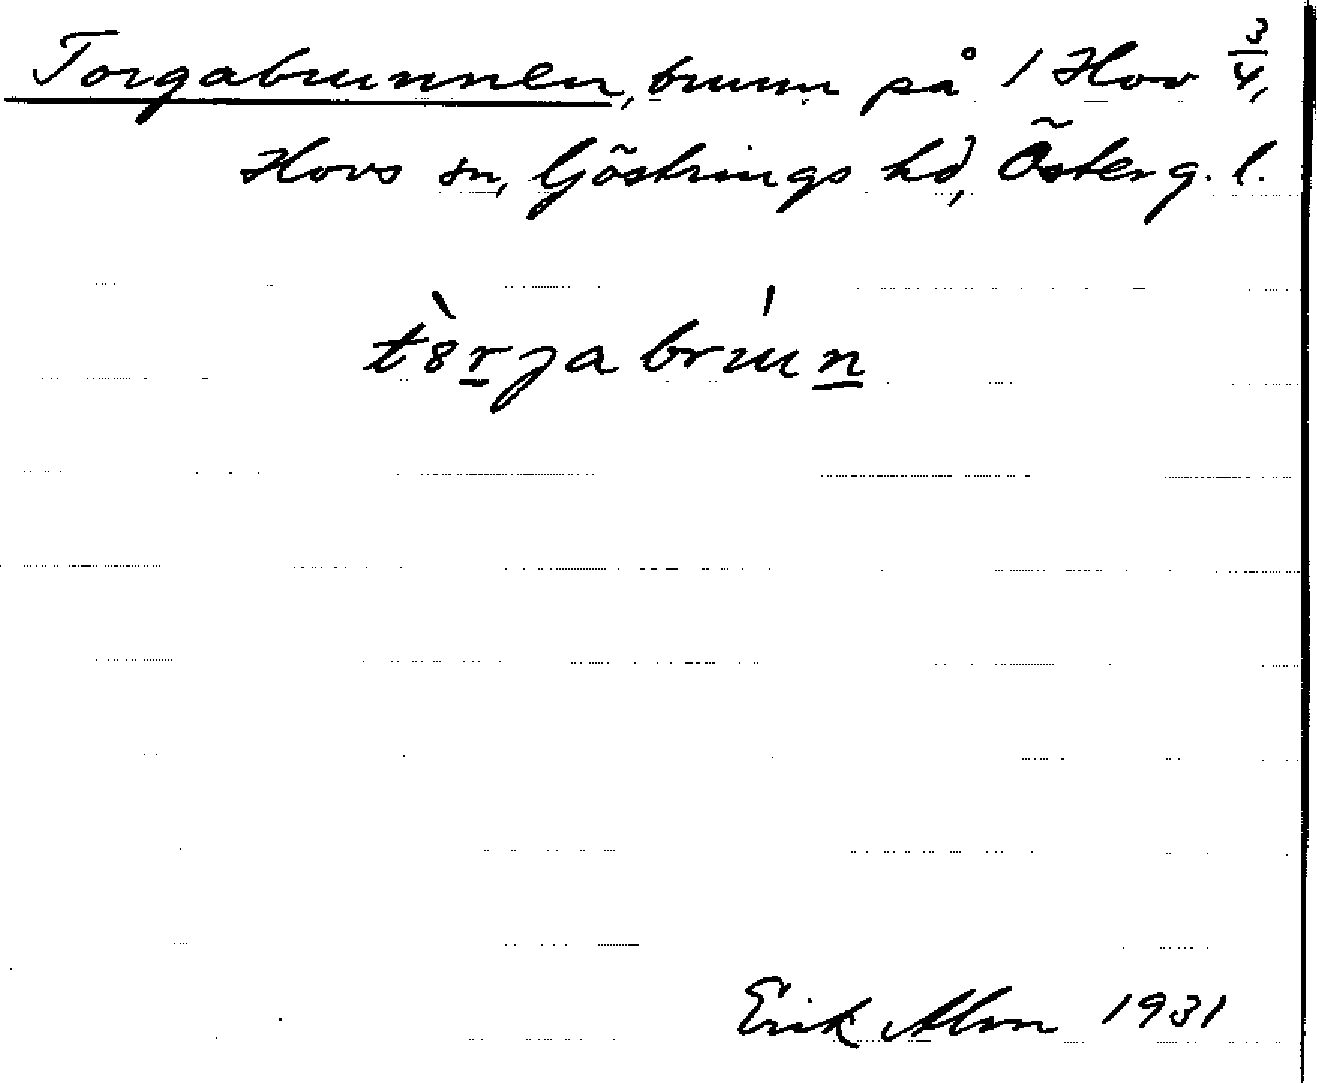 Torgabrunnen, brunn på 1 Hov 3/4,
Hovs sn, Göstrings hd, Österg. l.
tòrgabrúnn
Erik Alm 1931